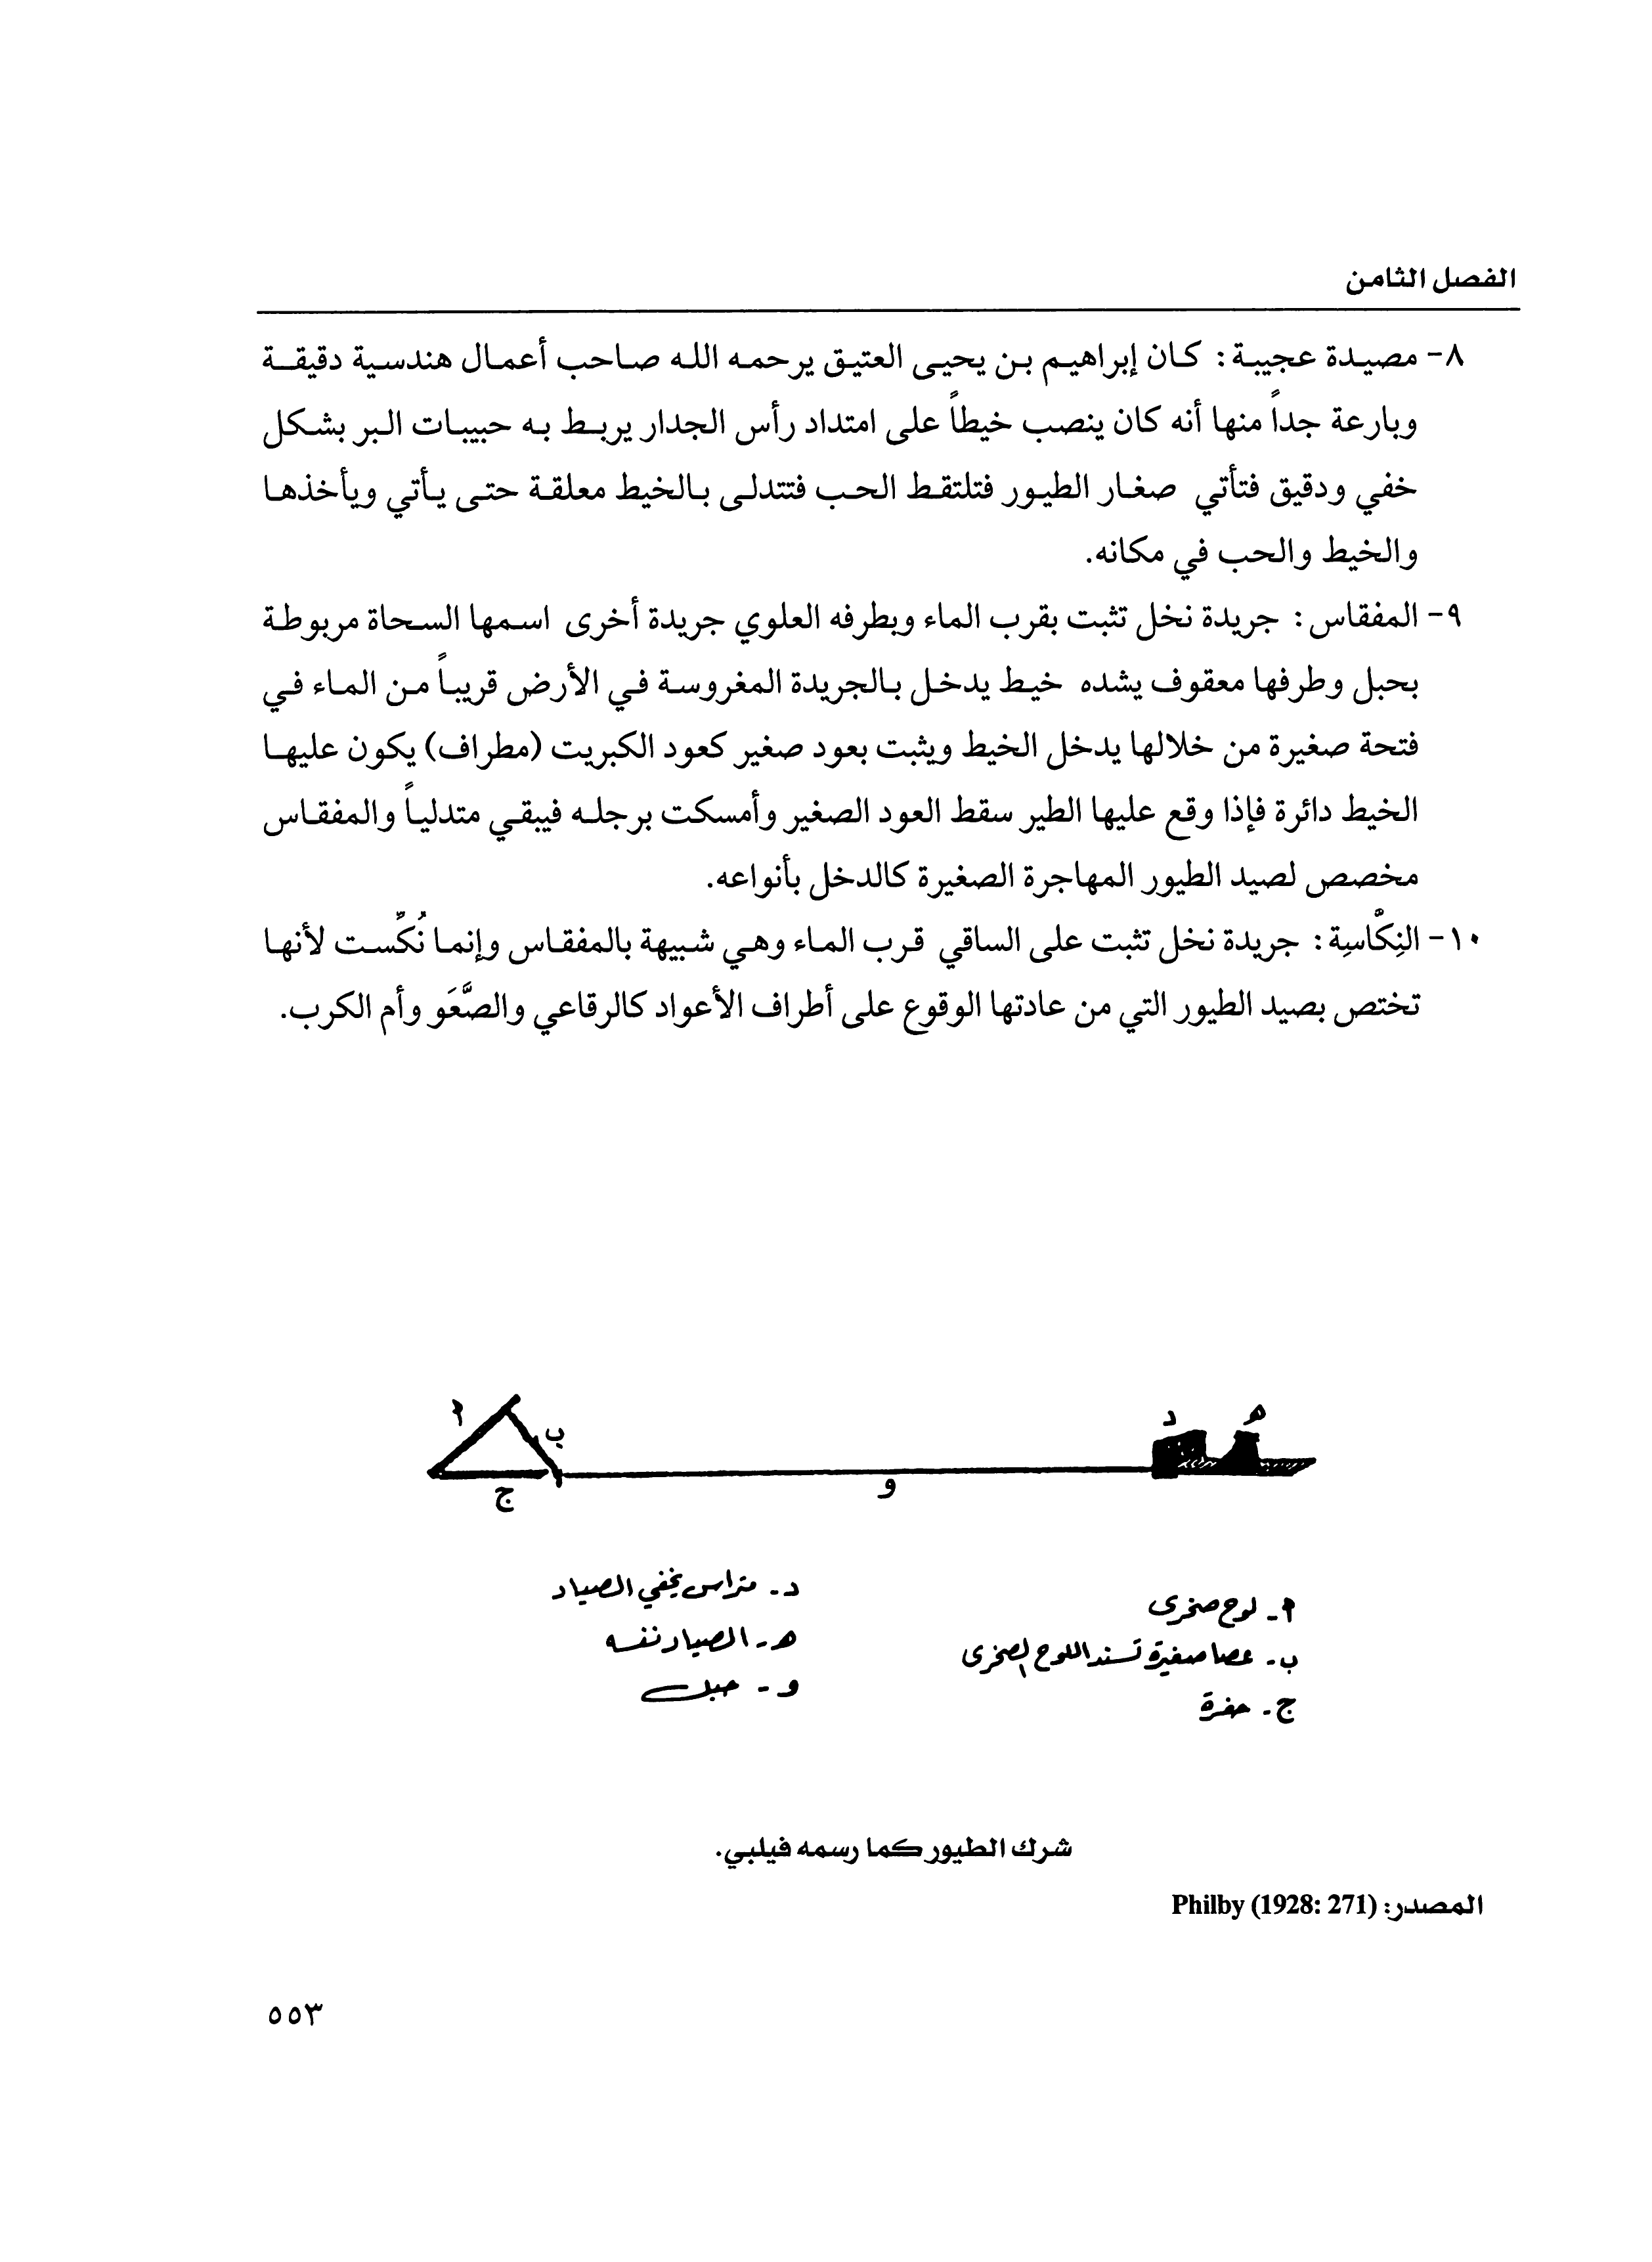 الفصل الثامن
٨- مصيدة عجيبة: كان إبراهيم بن يحيى العتيق يرحمه الله صاحب أعمال هندسية دقيقة
وبارعة جداً منها أنه كان ينصب خيطاً على امتداد رأس الجدار يربط به حبيبات البر بشكل
خفي ودقيق فتأتي صغار الطيور فتلتقط الحب فتتدلى بالخيط معلقة حتى يأتي ويأخذها
والخيط والحب في مكانه.
٩- المفقاس: جريدة نخل تثبت بقرب الماء وبطرفه العلوي جريدة أخرى اسمها السحاة مربوطة
بحبل وطرفها معقوف يشده خيط يدخل بالجريدة المغروسة في الأرض قريباً من الماء في
فتحة صغيرة من خلالها يدخل الخيط ويثبت بعود صغير كعود الكبريت (مطراف) يكون عليها
الخيط دائرة فإذا وقع عليها الطير سقط العود الصغير وأمسكت برجله فيبقي متدلياً والمفقاس
مخصص لصيد الطيور المهاجرة الصغيرة كالدخل بأنواعه.
١٠- النِكَّاسِة: جريدة نخل تثبت على الساقي قرب الماء وهي شبيهة بالمفقاس وإنما نُكِّست لأنها
تختص بصيد الطيور التي من عادتها الوقوع على أطراف الأعواد كالرقاعي والصَّعَو وأم الكرب.
أ
ب
ج
و
د
هـ
أ- لوح صخرى
ب- عصا صغيرة تسند اللوح الصخرى
ج- حفرة
د- متراس يخفي الصياد
هـ- الصياد نفسه
و- حبل
شرك الطيور كما رسمه فيلبي.
المصدر: Philby (1928: 271)
٥٥٣